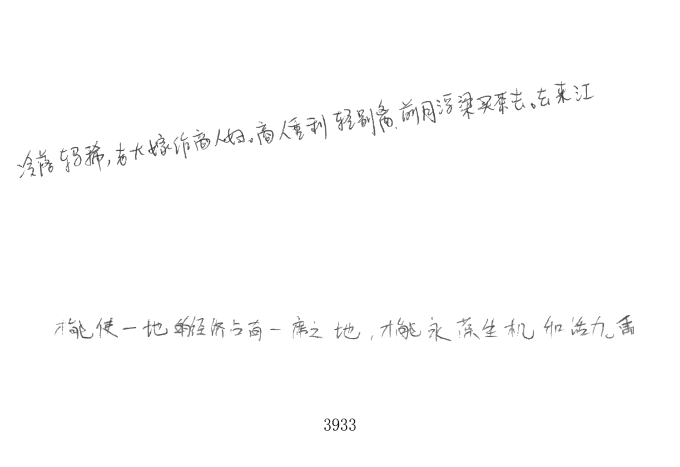 冷落鞍马稀，老大嫁作商人妇。商人重利轻别离，前月浮梁买茶去。去来江
才能使一地的经济占有一席之地，才能永葆生机和活力。番
3933